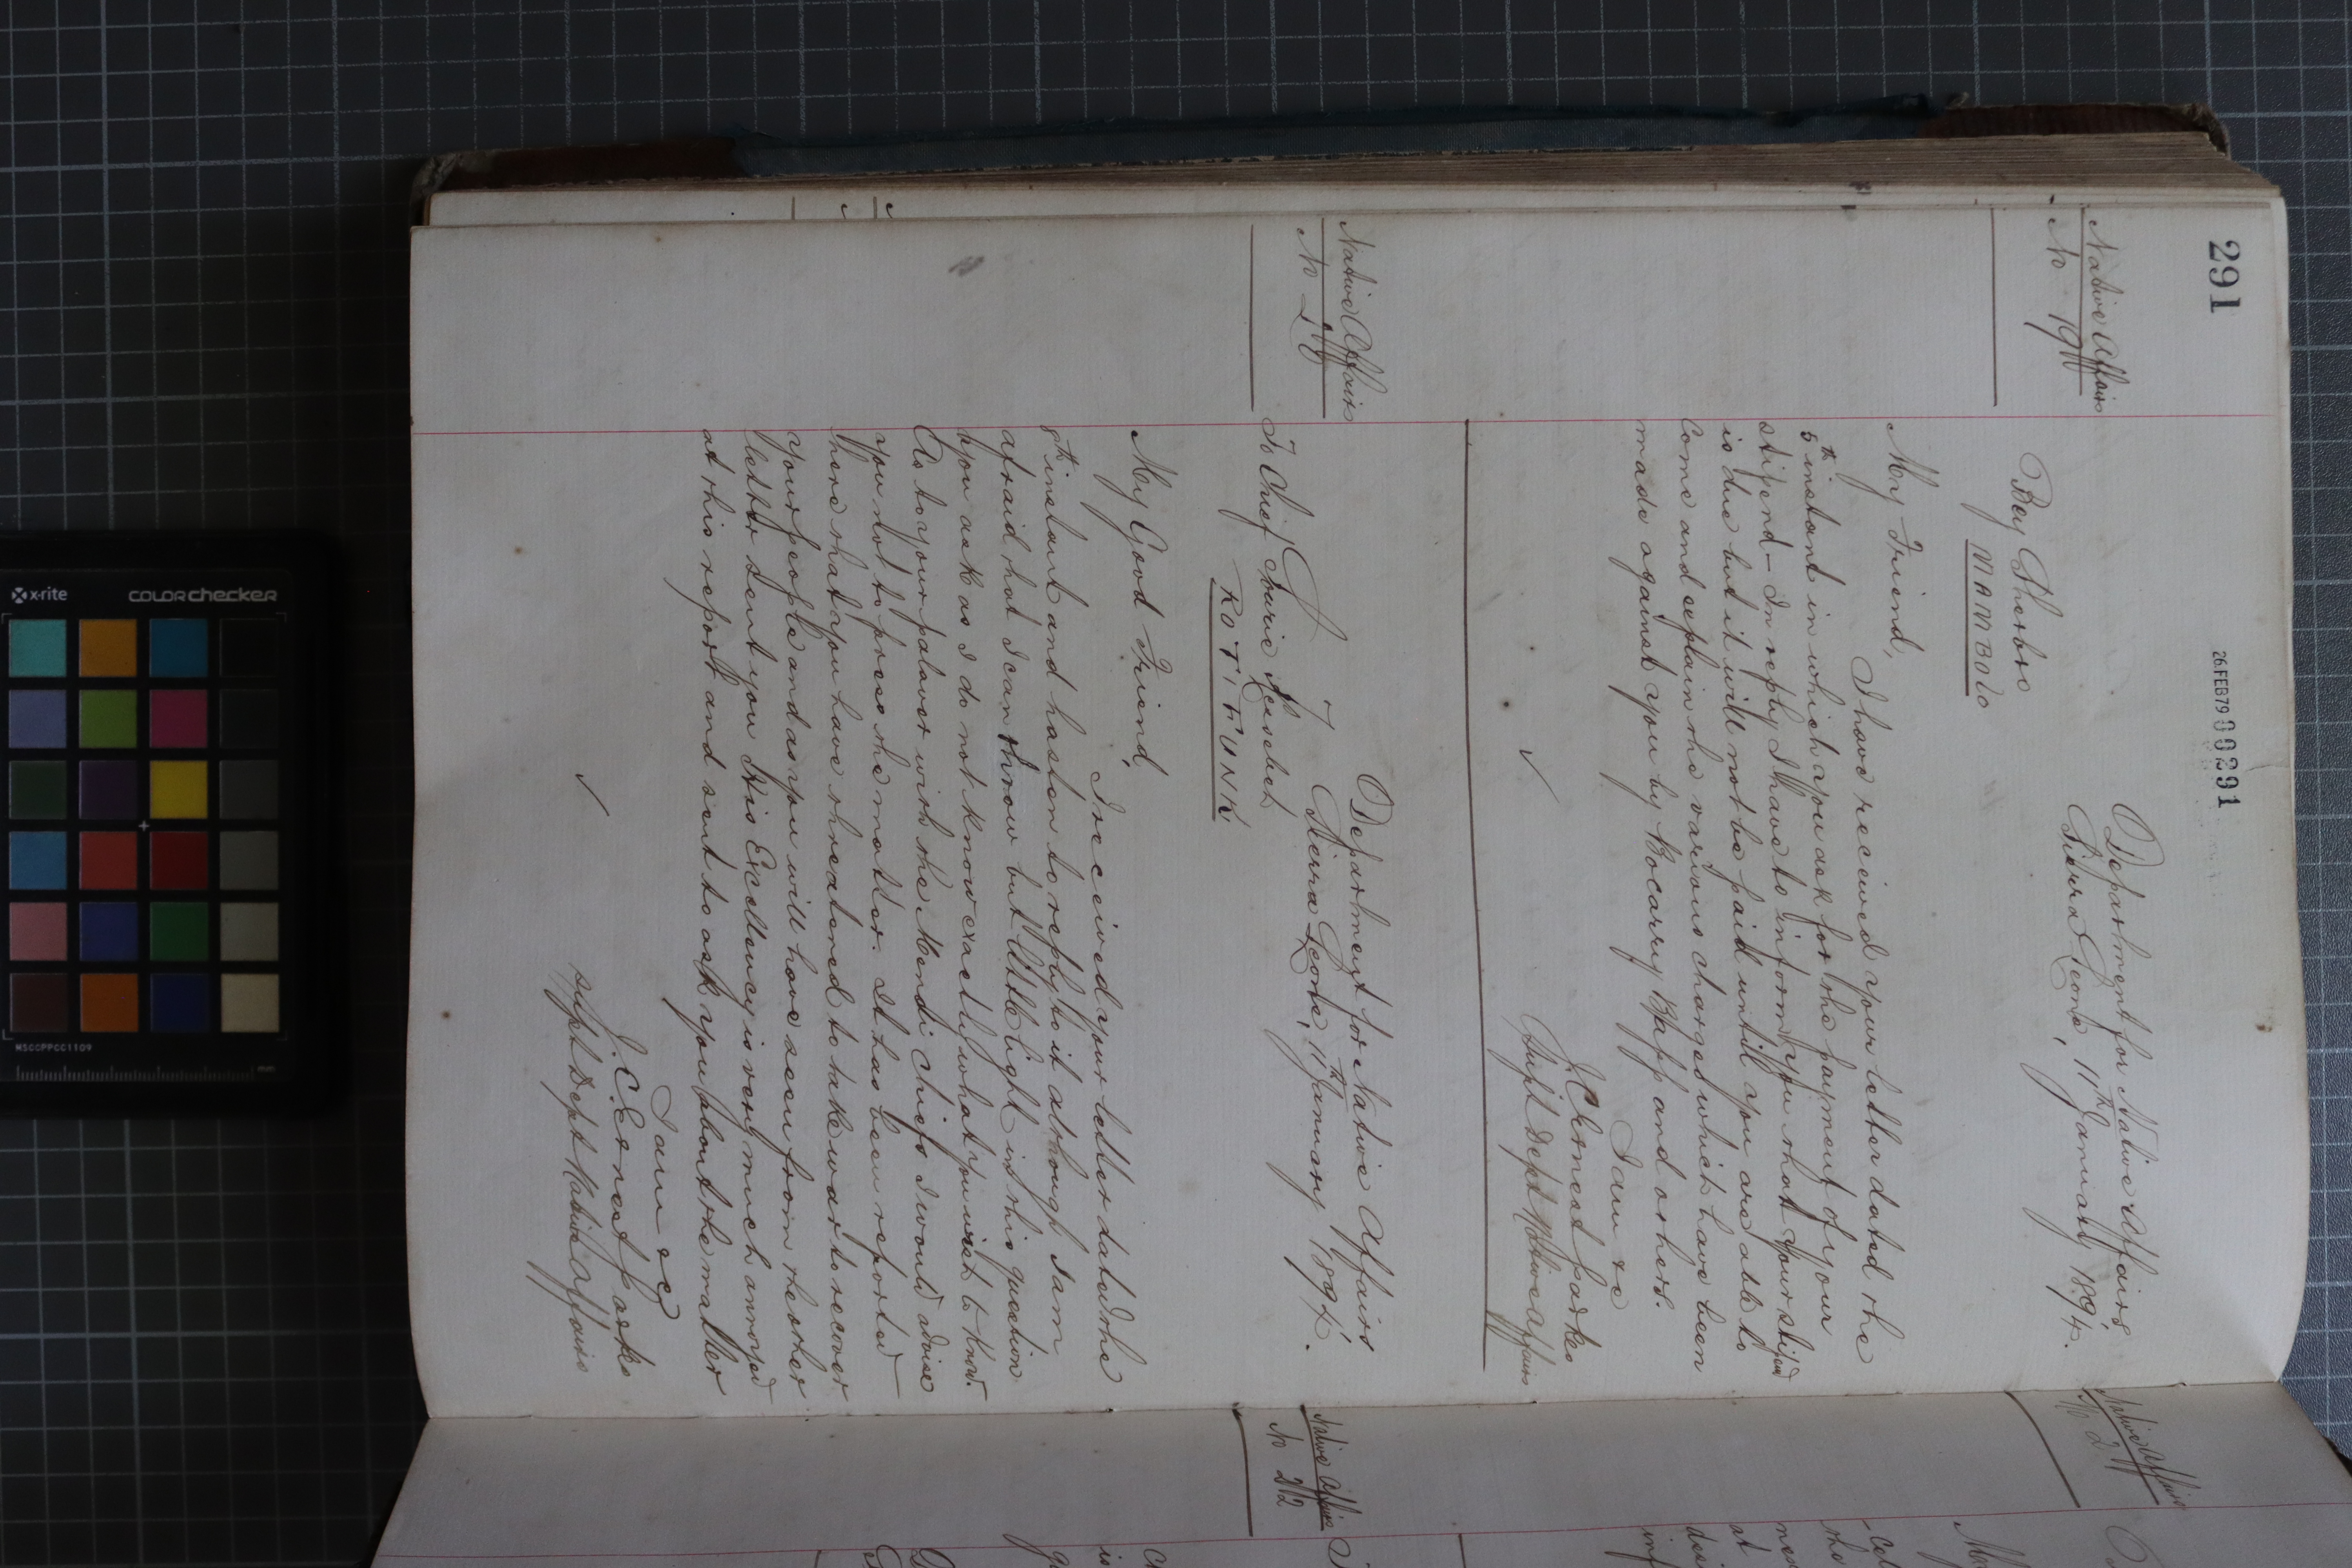 291
26 FEB 79 00291
Native Affairs
No 19
Department for Native Affairs
Sierra Leone, 11th January 1894.
Bey Sherbro
MAMBOLO
My Friend,
I have received your letter dated the
5th instant in which you ask for the payment of your
stipend – In reply I have to inform you that your stipend
is due but it will not be paid until you are able to
come and explain the various charges which have been
made against you by Bocarry Bapp and others.
I am &c
J. C. Ernest Parkes
Supt Dept Native Affairs
✓
Native Affairs
No 20
Department for Native Affairs
Sierra Leone, 11th January 1894.
To Chief
ROTIFUNK
My Good Friend,
I received your letter dated the
8th instant and hasten to reply to it although I am
afraid that I can throw but little light in this question
you ask as I do not know exactly what you wish to know.
As to your palaver with the Mendi Chiefs I would advise
you not to press the matter. It has been reported
here that you have threatened to take war to recover
your people and as you will have seen from the other
letter sent you His Excellency is very much annoyed
at this report and sent to ask you about the matter
I am &c
J. C. Ernest Parkes
Supt Dept Native Affairs
✓
Native Affairs
No 21
Native Affairs
No 22
x-rite
colorchecker
MSCCPPCC1109
mm